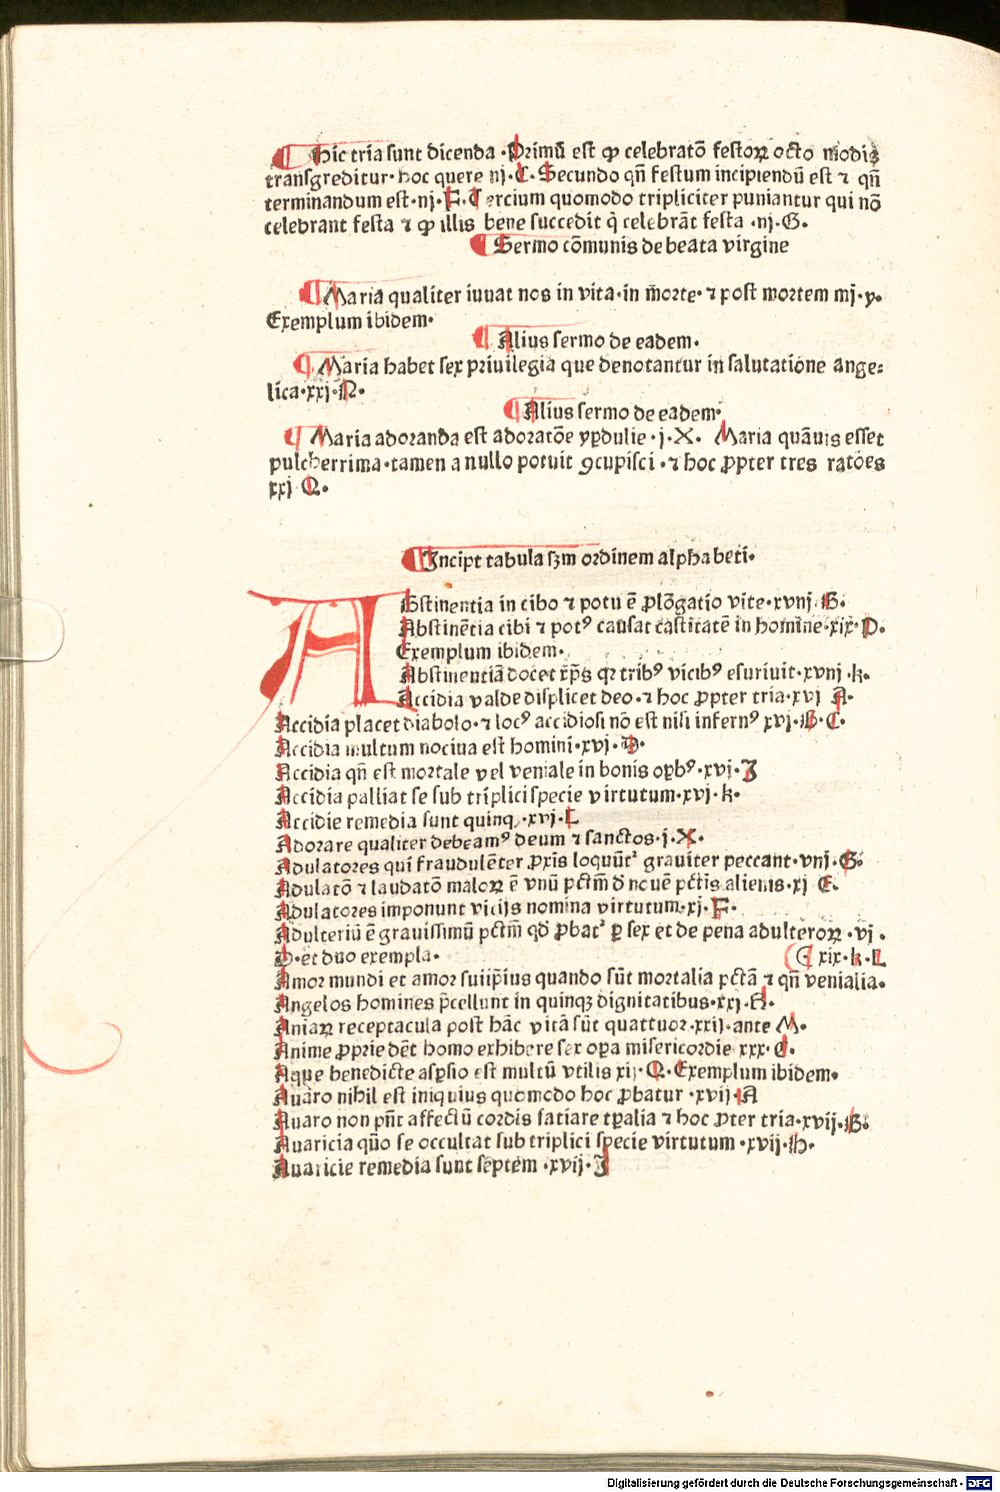 ¶ Hic tria sunt dicenda · Primū est ꝙ celebratō festoꝝ octo modis
transgreditur· hoc quere nj· C· Secundo qn̄ festum incipiendū est ⁊ qn̄
terminandum est·nj·F·Tercium quomodo tripliciter puniantur qui nō
celebrant festa ⁊ ꝙ illis bene succedit q̇ celebrāt festa ·nj·G·
¶ Sermo cōmunis de beata virgine
¶ Maria qualiter iuuat nos in vita·in morte·⁊ post mortem mj·y·
Exemplum ibidem·
¶ Alius sermo de eadem·
¶ Maria habet sex priuilegia que denotantur in salutatione ange⸗
lica·xxj·N·
¶ Alius sermo de eadem·
¶ Maria adoranda est adoratōe yꝑdulie·j·X· Maria quāuis esset
pulcherrima·tamen a nullo potuit ꝯcupisci·⁊ hoc ꝓpter tres ratōes
xxj Q·
¶ Incipt tabula sꝫm ordinem alphabeti·
ABstinentia in cibo ⁊ potu ē ꝓlōgatio vite·xvnj·B·
Abstinētia cibi ⁊ potꝰ causat castitatē in homine·xix·D·
Exemplum ibidem·
Abstinentiā docet xp̄s qꝛ tribꝰ vicibꝰ esuriuit·xvnj·k·
Accidia valde displicet deo·⁊ hoc ꝓpter tria·xvj A·
Accidia placet diabolo·⁊ locꝰ accidiosi nō est nisi infernꝰ xvj·B·C·
Accidia multum nociua est homini·xvj·D·
Accidia qn̄ est mortale vel veniale in bonis oꝑbꝰ·xvj·J
Accidia palliat se sub triplici specie virtutum·xvj·k·
Accidie remedia sunt quinqꝫ·xvj·L
Adorare qualiter debeamꝰ deum ⁊ sanctos·j·X·
Adulatores qui fraudulēter ꝓxīs loquūt᷑ grauiter peccant·vnj·G·
Adulatō ⁊ laudatō maloꝝ ē vnū pctm̄ d nouē pctīs alienis·xj E·
Adulatores imponunt vicijs nomina virtutum·xj·F·
Adulteriū ē grauissimū pctm̄ qd̄ ꝓbat᷑ ꝑ sex et de pena adulteroꝝ·vj·
D·et duo exempla· ( xix·k·L
Amor mundi et amor suiip̄ius quando sūt mortalia pctā ⁊ qn̄ venialia·
Angelos homines p̄cellunt in quinqꝫ dignitatibus·xxj·H·
Aniaꝝ receptacula post hāc vitā sūt quattuor·xxij·ante M·
Anime ꝓprie dēt homo exhibere sex oꝑa misericordie xxx·C·
Aque benedicte asꝑsio est multū vtilis xij·Q·Exemplum ibidem·
Auaro nihil est iniquius quomodo hoc ꝓbatur·xvij·A
Auaro non pn̄t affectū cordis satiare tꝑalia ⁊ hoc ꝓter tria·xvij·B·
Auaricia quō se occultat sub triplici specie virtutum·xvij·H·
Auaricie remedia sunt septem·xvij·J
Digitalisierung gefördert durch die Deutsche Forschungsgemeinschaft - DFG